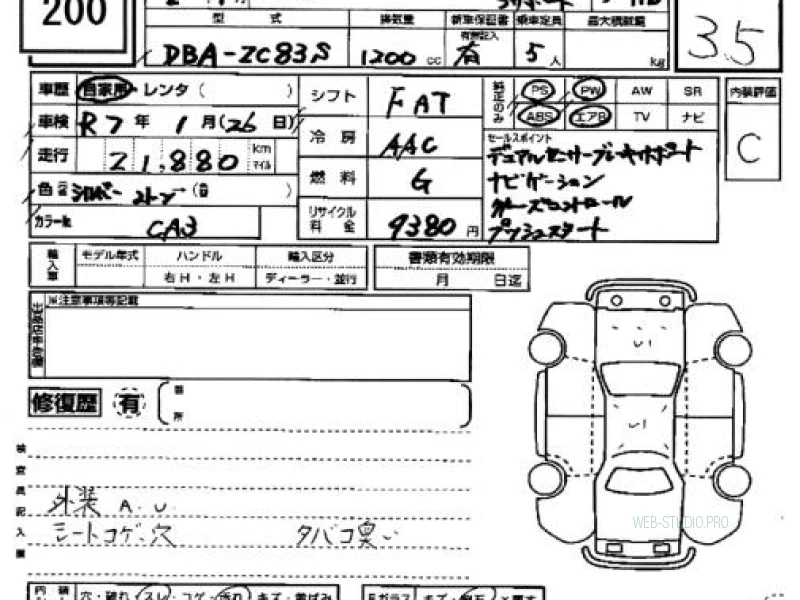 200
型 式 排気量 新車保証書 乗車定員 最大積載量
DBA-ZC83S 1200 cc 有無記入 有 5 人 kg
3.5
車歴 自家用・レンタ ( )
車検 R7 年 1 月 (26 日)
走行 21,880 km マイル
色 シルバー 2トン (色 )
カラーNo CA3
シフト FAT
冷 房 AAC
燃 料 G
リサイクル料金 9380 円
純正のみ PS PW AW SR
ABS エアB TV ナビ
セールスポイント
デュアルセンサーブレーキサポート
ナビゲーション
クルーズコントロール
プッシュスタート
内装評価
C
輸入車 モデル年式 ハンドル 輸入区分
右H・左H ディーラー・並行
書類有効期限
月 日迄
出品店申告欄 ※注意事項等記載
修復歴 有
箇所
検査員記入欄
外装 A.U.
シートコゲ・穴 タバコ臭い
WEB-STUDIO.PRO